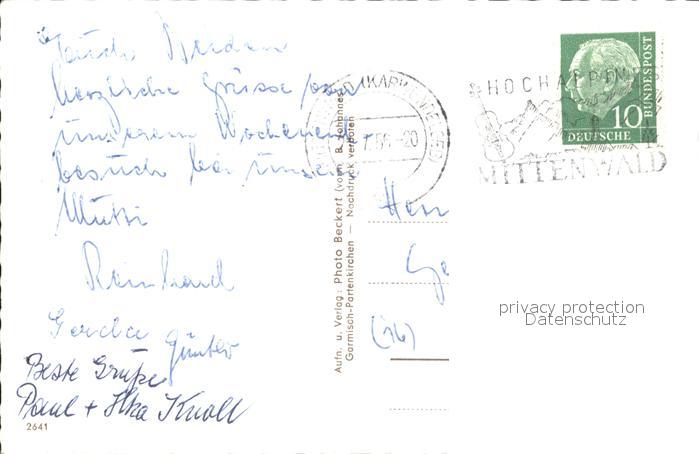 Euch Beiden
herzliche Grüsse von
unserem Wochenend-
besuch bei unserer
Mutti
Reinhard
Gerda
Günter
Beste Grüße
Paul + Ilka Knoll
2641
Aufn. u. Verlag: Photo Beckert (vorm. B. Johannes)
Garmisch-Partenkirchen — Nachdruck verboten
(KARWENDEL)
-20
HOCHALPEN
MITTENWALD
10
DEUTSCHE
BUNDESPOST
Herr
Ge
(16)
privacy protection
Datenschutz